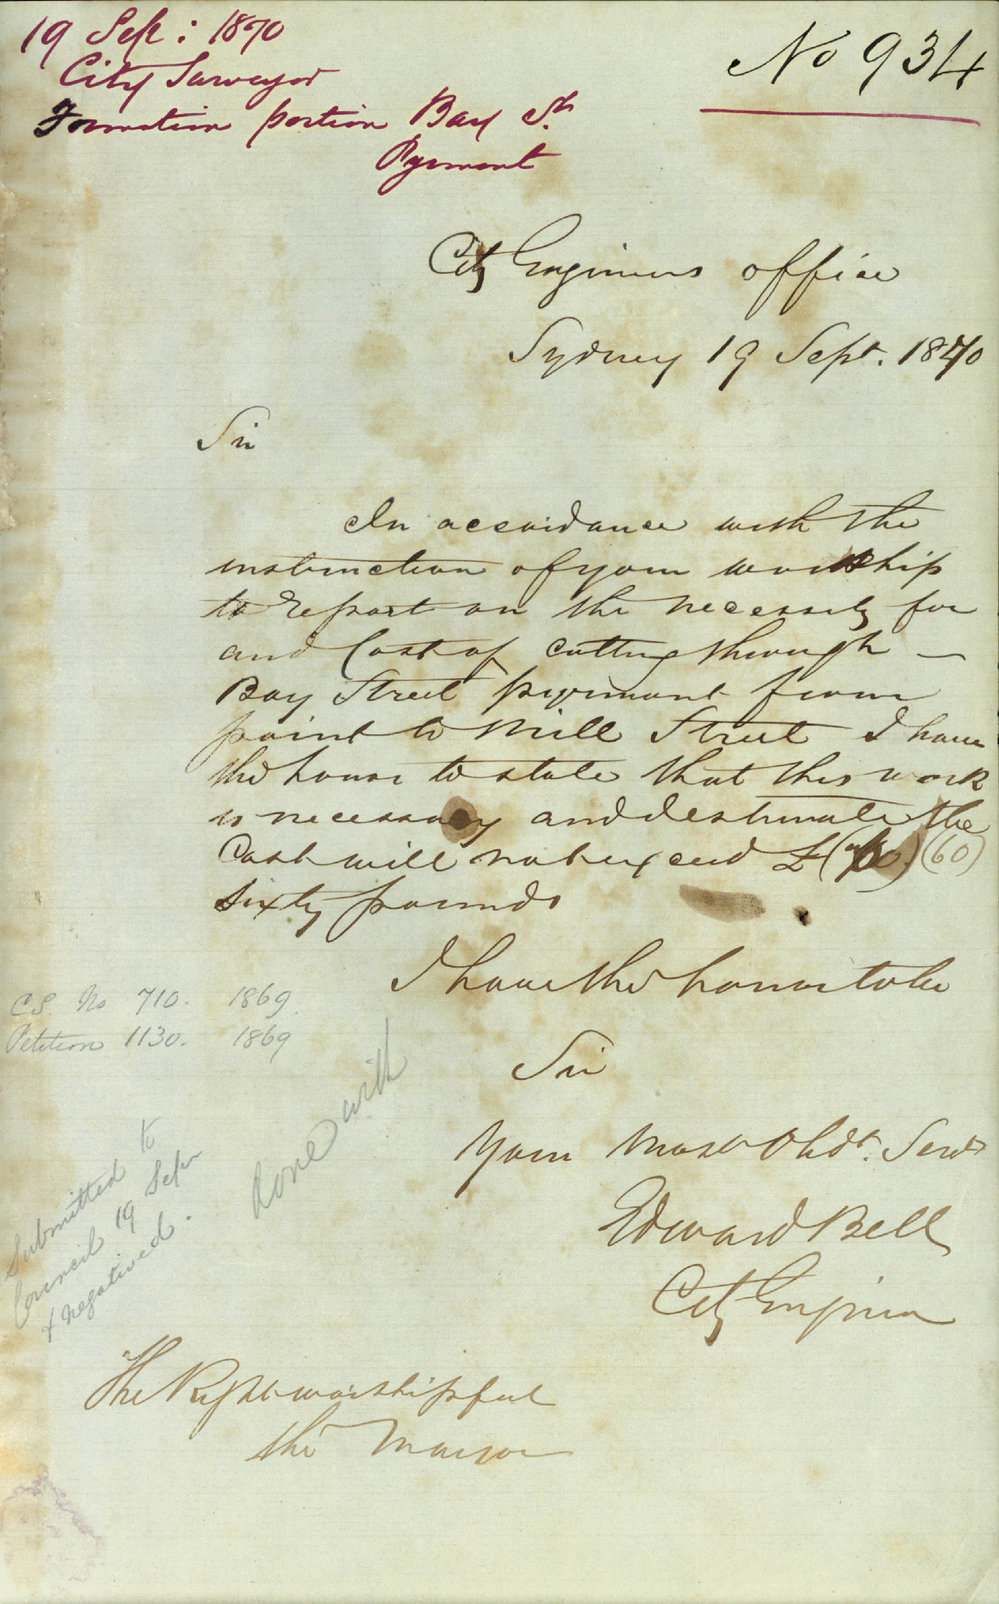 19 Sep: 1870
City Surveyor
Formation portion Bay St.
Pyrmont
No 934
City Engineers office
Sydney 19 Sept. 1870
Sir
In accordance with the
instruction of your worship
to report on the necessity for
and Cost of cutting through —
Bay Street pyrmont from
point to Mill Street I have
the honor to state that this work
is necessary and I estimate the
Cost will not exceed £ (60)
sixty pounds
I have the honor to be
Sir
Your Most Obdt. Servt
Edward Bell
City Engineer
C.S. No 710. 1869.
Petition 1130. 1869
Done with
Submitted to
Council 19 Sepr
& negatived.
The Right worshipful
the Mayor